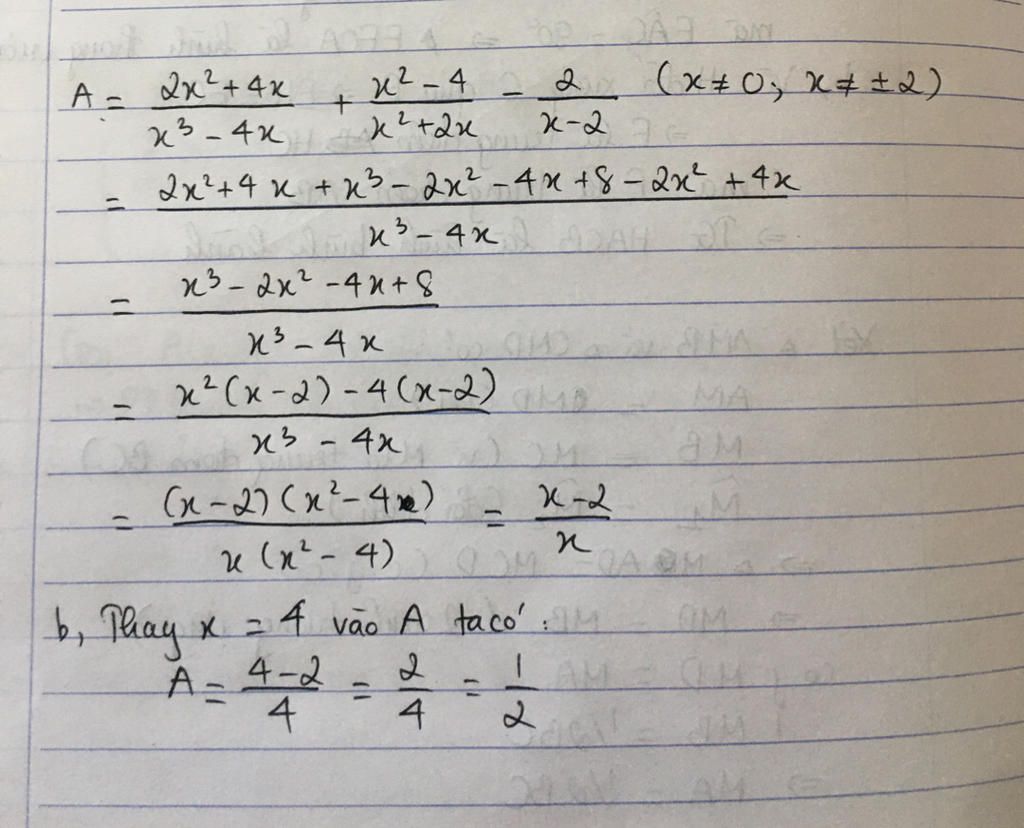 A = (2x² + 4x)/(x³ - 4x) + (x² - 4)/(x² + 2x) - 2/(x - 2) (x ≠ 0; x ≠ ±2)
= (2x² + 4x + x³ - 2x² - 4x + 8 - 2x² + 4x)/(x³ - 4x)
= (x³ - 2x² - 4x + 8)/(x³ - 4x)
= (x²(x - 2) - 4(x - 2))/(x³ - 4x)
= ((x - 2)(x² - 4))/(x(x² - 4)) = (x - 2)/x
b, Thay x = 4 vào A ta có:
A = (4 - 2)/4 = 2/4 = 1/2